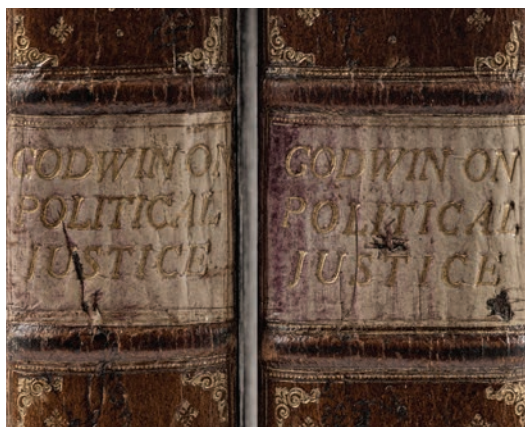 GODWIN ON
POLITICAL
JUSTICE
GODWIN ON
POLITICAL
JUSTICE